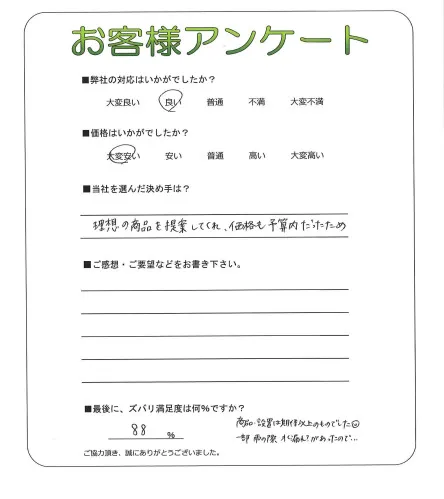 お客様アンケート
■弊社の対応はいかがでしたか？
大変良い 良い 普通 不満 大変不満
■価格はいかがでしたか？
大変安い 安い 普通 高い 大変高い
■当社を選んだ決め手は？
理想の商品を提案してくれ、価格も予算内だったため
■ご感想・ご要望などをお書き下さい。
■最後に、ズバリ満足度は何%ですか？
商品・設置は期待以上のものでした
88 %
一部 雨の際 水漏れがあったので…
ご協力頂き、誠にありがとうございました。